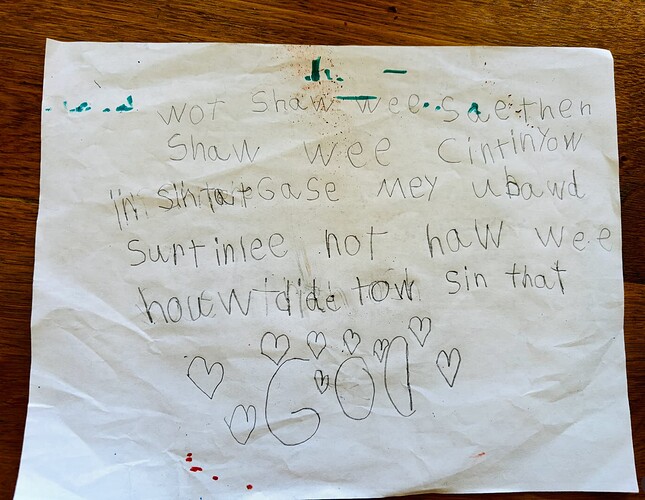 wot Shaw wee Sae then
Shaw wee Cintinyow
in Sin tat Gase mey ubawd
Surtinlee not haw wee
dide tow sin that
GOD